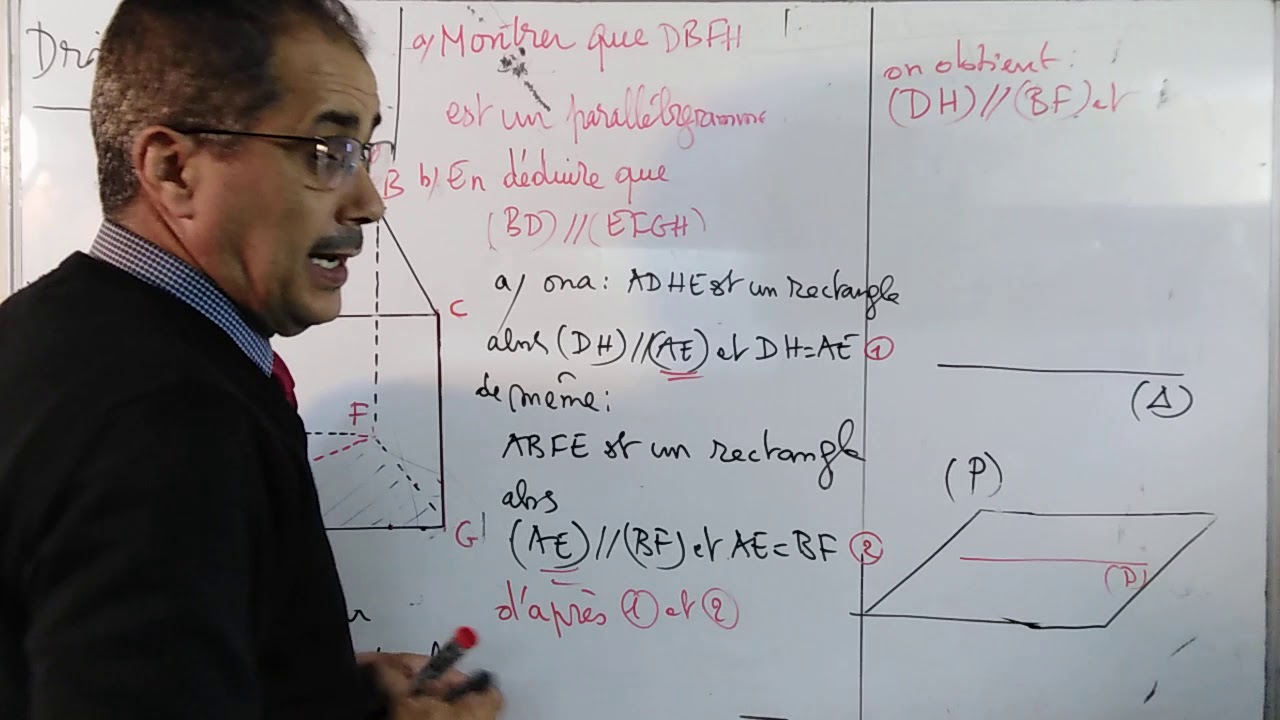 Dri
a/ Montrer que DBFH
est un parallélogramme
b/ En déduire que
(BD) // (EFGH)
a/ on a : ADHE est un rectangle
alors (DH) // (AE) et DH = AE ①
de même :
ABFE est un rectangle
alors
(AE) // (BF) et AE = BF ②
d'après ① et ②
on obtient :
(DH) // (BF) et
B
C
F
G
(Δ)
(P)
(D)